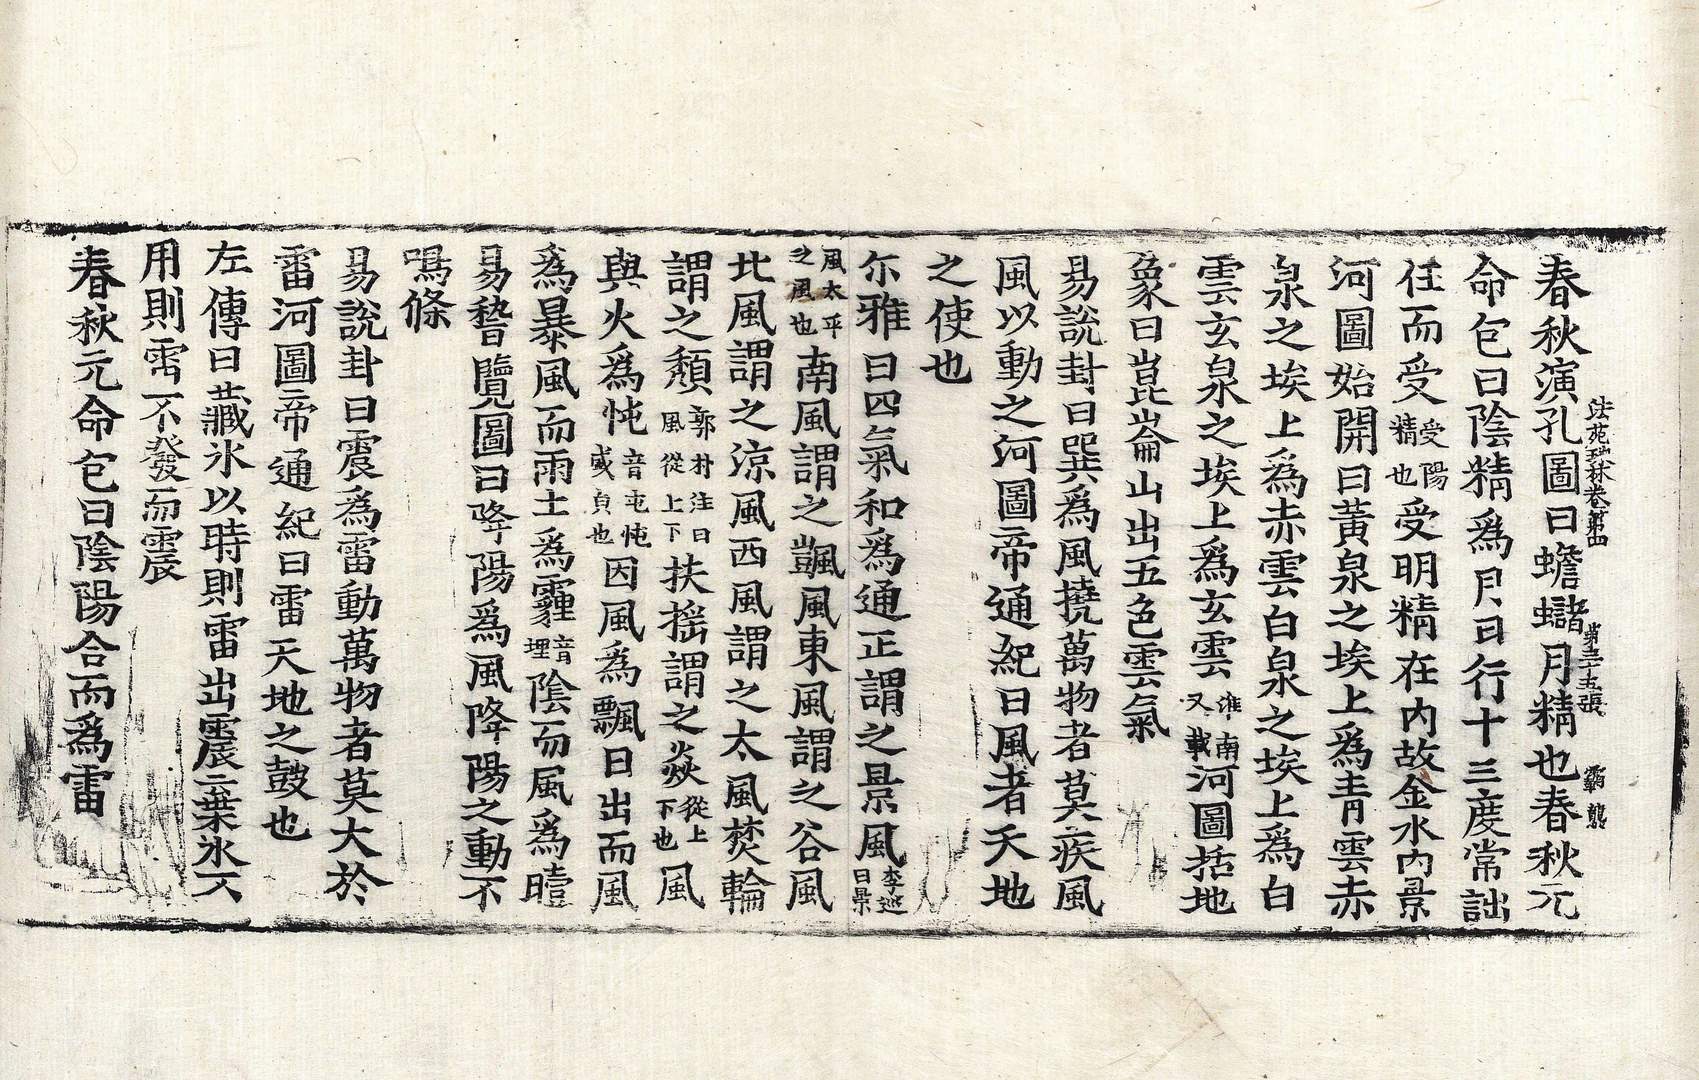 春秋演孔圖曰蟾蠩月精也春秋元
法苑珠林卷第四 第三十五張 霸 龔
命包曰陰精爲月日行十三度常詘
任而受精也受陽受明精在內故金水內景
河圖始開曰黃泉之埃上爲青雲赤
泉之埃上爲赤雲白泉之埃上爲白
雲玄泉之埃上爲玄雲淮南又載河圖括地
象曰崑崙山出五色雲氣
易說封曰巽爲風撓萬物者莫疾風
風以動之河圖帝通紀曰風者天地
之使也
尒雅曰四氣和爲通正謂之景風李巡曰景
風太平之風也南風謂之颽風東風謂之谷風
北風謂之涼風西風謂之太風焚輪
謂之頹郭村注曰風從上下扶搖謂之焱從上下也風
與火爲忳音屯忳盛貞也因風爲飄日出而風
爲暴風而雨土爲霾音埋陰而風爲曀
易譬覽圖曰降陽爲風降陽之動不
鳴條
易說卦曰震爲雷動萬物者莫大於
雷河圖帝通紀曰雷天地之鼓也
左傳曰藏氷以時則雷出震棄氷不
用則雷不發而震
春秋元命包曰陰陽合而爲雷